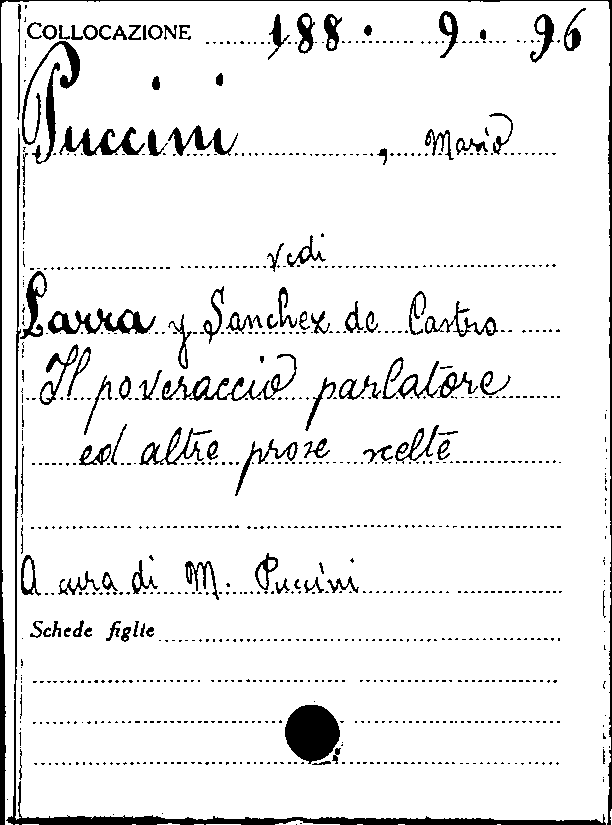 COLLOCAZIONE 188. 9. 96
Puccini, Mario
vedi
Larra y Sanchez de Castro
Il poveraccio parlatore
ed altre prose scelte
A cura di M. Puccini
Schede figlie